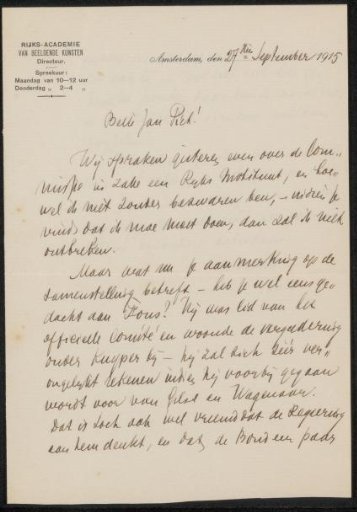 RIJKS-ACADEMIE
VAN BEELDENDE KUNSTEN
Directeur.
Spreekuur:
Maandag van 10—12 uur
Donderdag „ 2—4 „
Amsterdam, den 27sten September 1915
Beste Jan Piet!
Wij spraken gisteren even over de Com-
missie in zake een Rijks Instituut, en hoe-
wel ik niet zonder bezwaren ben, — indien je
vindt dat ik moe moet doen, dan zal ik niet
ontbreken.
Maar wat nu je aanmerking op de
samenstelling betreft — heb je wel eens ge-
dacht aan Fons? Hij was lid van het
officieele Comité en woonde de vergadering
onder Kuyper bij — hij zal zich zéér ver-
ongelijkt rekenen indien hij voorbij gegaan
wordt voor van Gilse en Wagenaar.
Dat is toch ook wel vreemd dat de Regeering
aan hem denkt, en dat de Bond een paar